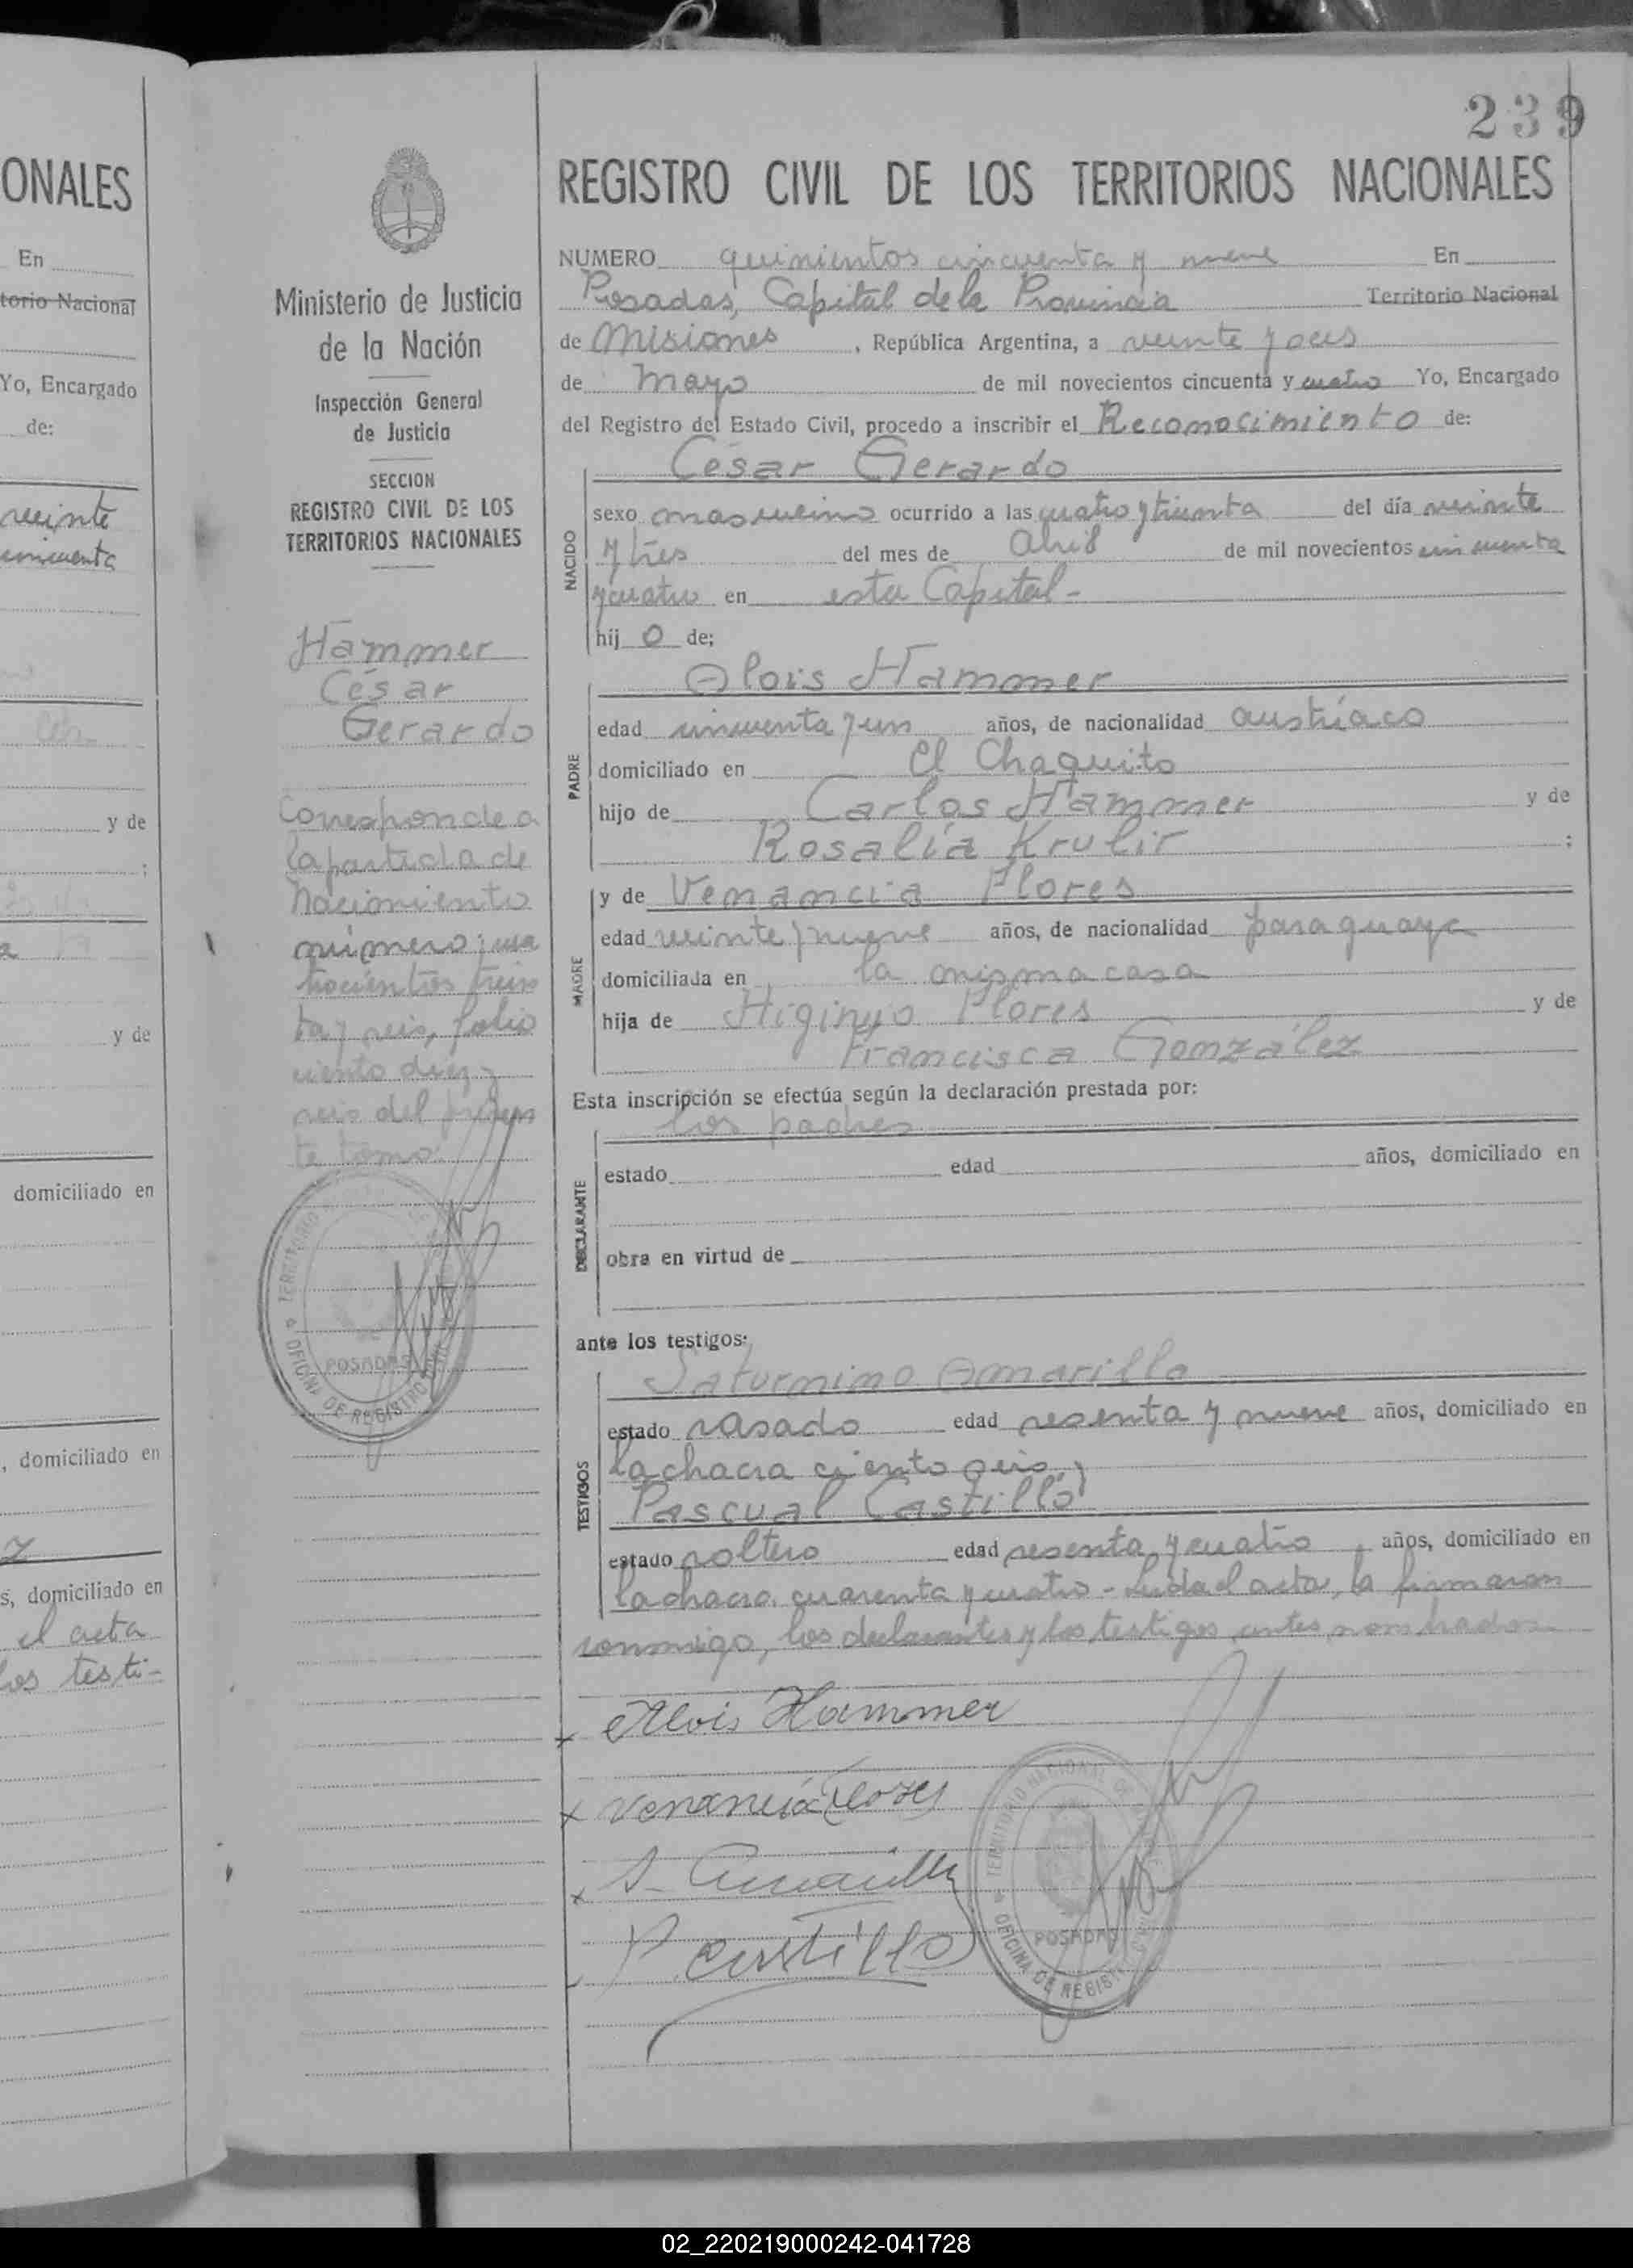 239
ONALES
En
torio Nacional
Yo, Encargado
de:
veinte
cincuenta
y de
;
y de
domiciliado en
, domiciliado en
s, domiciliado en
el acta
los testi-
Ministerio de Justicia
de la Nación
Inspección General
de Justicia
SECCION
REGISTRO CIVIL DE LOS
TERRITORIOS NACIONALES
Hammer
César
Gerardo
Corresponde a
la partida de
Nacimiento
número: cua
trocientos trein
ta y seis, folio
ciento diez y
seis del presen
te tomo.
TERRITORIO
POSADAS
OFICINA DE REGISTRO CIVIL
REGISTRO CIVIL DE LOS TERRITORIOS NACIONALES
NUMERO quinientos cincuenta y nueve En
Posadas, Capital de la Provincia Territorio Nacional
de Misiones, República Argentina, a veinte y seis
de mayo de mil novecientos cincuenta y cuatro Yo, Encargado
del Registro del Estado Civil, procedo a inscribir el Reconocimiento de:
César Gerardo
NACIDO
sexo masculino ocurrido a las cuatro y treinta del día veinte
y tres del mes de Abril de mil novecientos cincuenta
y cuatro en esta Capital-
hij o de;
PADRE
Alois Hammer
edad cincuenta y un años, de nacionalidad austríaco
domiciliado en El Chaquito
hijo de Carlos Hammer y de
Rosalía Krulir ;
MADRE
y de Venancia Flores
edad veinte y nueve años, de nacionalidad paraguaya
domiciliada en la misma casa
hija de Higinyo Flores y de
Francisca González
Esta inscripción se efectúa según la declaración prestada por:
DECLARANTE
los padres
estado edad años, domiciliado en
obra en virtud de
ante los testigos:
TESTIGOS
Saturnino Amarilla
estado casado edad sesenta y nueve años, domiciliado en
la chacra ciento seis y
Pascual Castillo
estado soltero edad sesenta y cuatro, años, domiciliado en
la chacra cuarenta y cuatro - Leida el acta, la firmaron
conmigo, los declarantes y los testigos antes nombrados
x Alois Hammer
x Venancia Flores
x S. Amarilla
P Castillo
TERRITORIO NACIONAL DE
POSADAS
OFICINA DE REGISTRO CIVIL
02_220219000242-041728